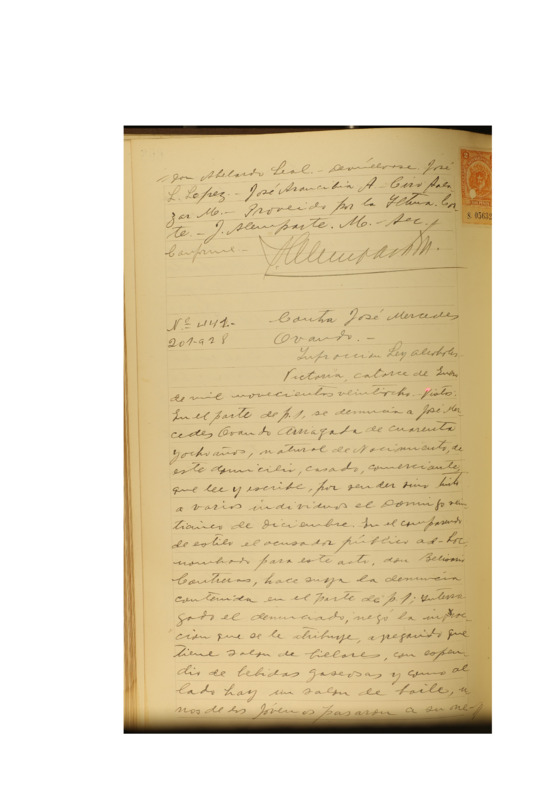 don Abelardo Leal.- Devuélvanse. José
L. Lopez.- José Arancibia A.- Ciro Sala-
zar M.- Proveido por la Iltma. Cor-
te.- J. Alemparte. M.- Sec.
Conforme.-
Nº 444.-
201-928
Contra José Mercedes
Ovando.-
Infraccion Ley alcoholes
Victoria, catorce de Enero
de mil novecientos veintiocho. Vistos:
En el parte de p. 1, se denuncia a José Mer-
cedes Ovando Arriagada de cuarenta
y ocho años, natural de Nacimiento, de
este domicilio, casado, comerciante,
que lee y escribe, por vender vino tinto
a varios individuos el Domingo vein-
ticinco de diciembre. En el comparendo
de estilo el acusador público ad-hoc
nombrado para este acto, don
Contreras, hace suya la denuncia
contenida en el parte de p. 1; interro-
gado el denunciado, negó la infrac-
cion que se le atribuye, agregando que
tiene salon de billares, con expen-
dio de bebidas gaseosas y como al
lado hay un salon de baile, u-
nos de los jóvenes pasaron a su ne-